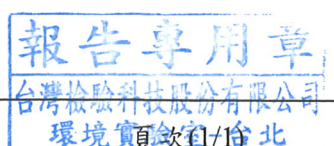 報告專用章
台灣檢驗科技股份有限公司
環境實驗室-台北
頁次(1/1